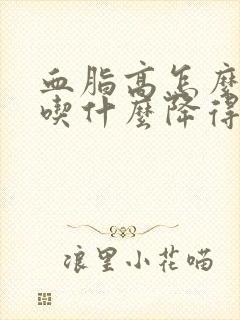 血脂高怎麼
喫什麼降得
浪里小花喵